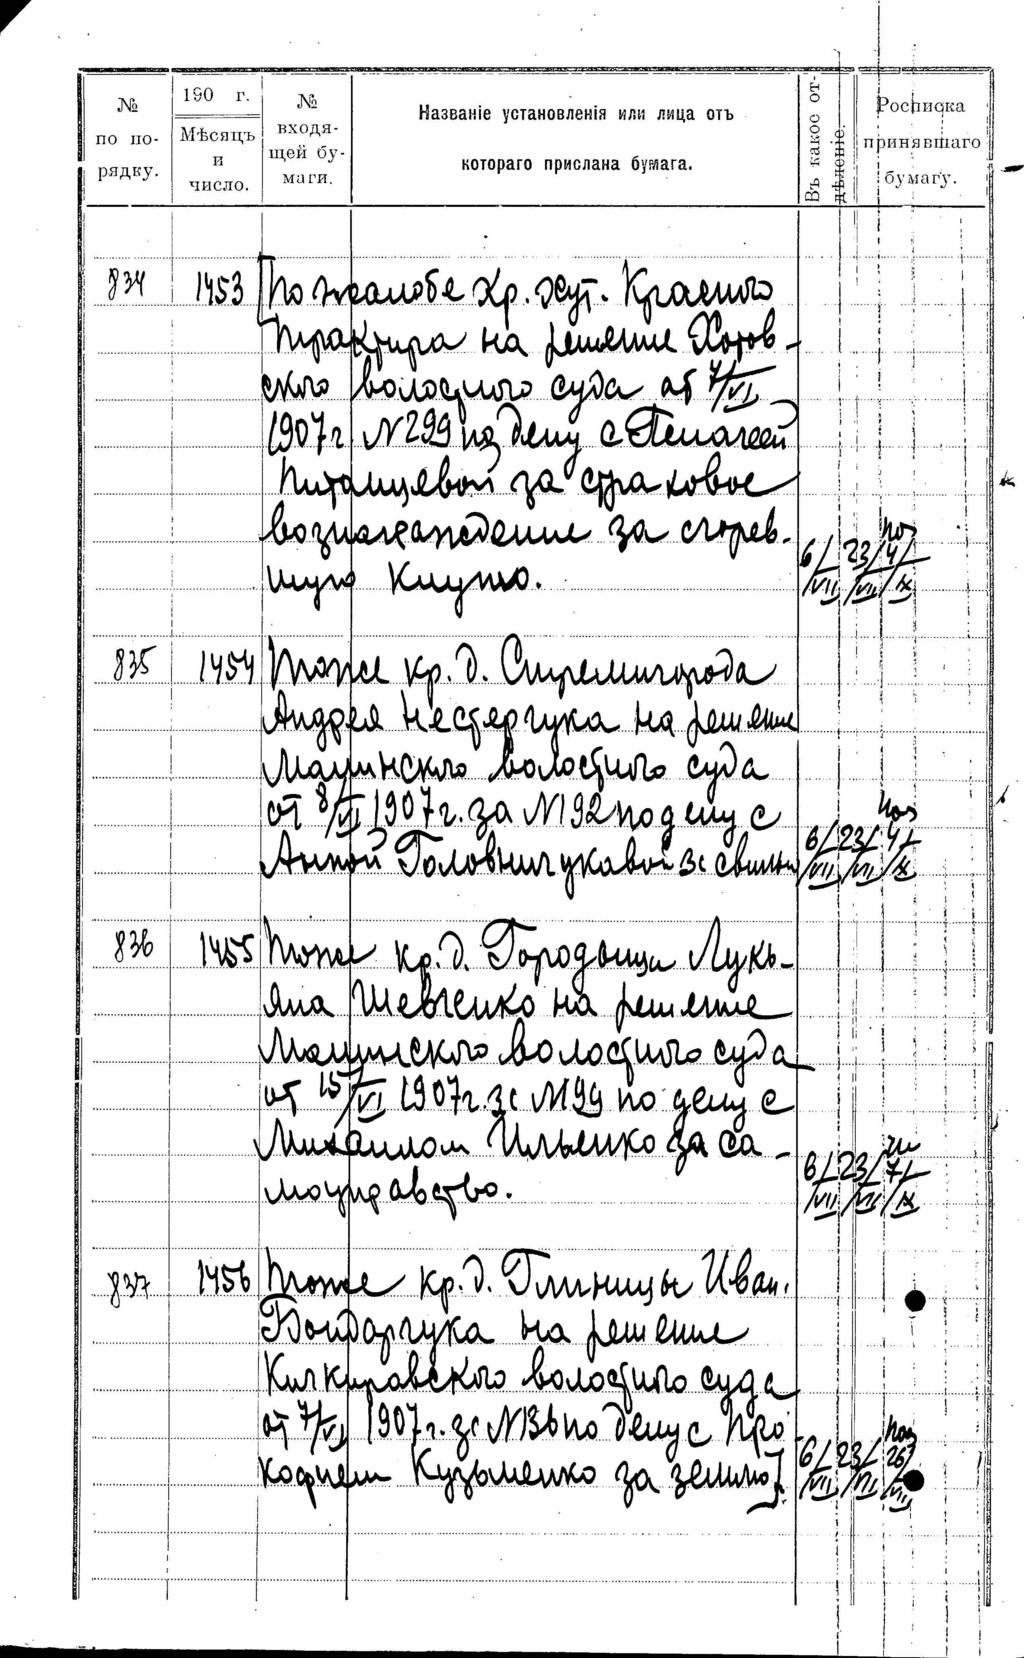 № по порядку.
190 г. Мѣсяцъ и число.
№ входящей бумаги.
Названіе установленія или лица отъ котораго прислана бумага.
Въ какое отдѣленіе.
Росписка принявшаго бумагу.
834 1453 [По жалобе кр. хут. Красного
трактира на решение Хотов-
ского волостного суда от 7/VI
1907 г. N 299 по делу с Пелагеей
за страховое
вознаграждение за сгорев-
шую клуню.
6/VII 23/VII 4/IX
835 1454 Тоже кр. д. Стремигорода
Андрея Нестерчука на решение
волостного суда
от 8/VI 1907 г. за N 192 по делу с
Анной за свинью
6/VII 23/VII 4/IX
836 1455 Тоже кр. д. Городыщи Лукь-
яна Шевченко на решение
волостного суда
от 15/VI 1907 г. за N 199 по делу с
Михаилом Ильенко за са-
моуправство.
6/VII 23/VII 7/IX
837 1456 Тоже кр. д. Глиницы Иван.
Бондарчука на решение
Кичкировского волостного суда
от 7/VI 1907 г. за N 136 по делу с Про
кофием Кузьменко за землю].
6/VII 23/VII 26/VII